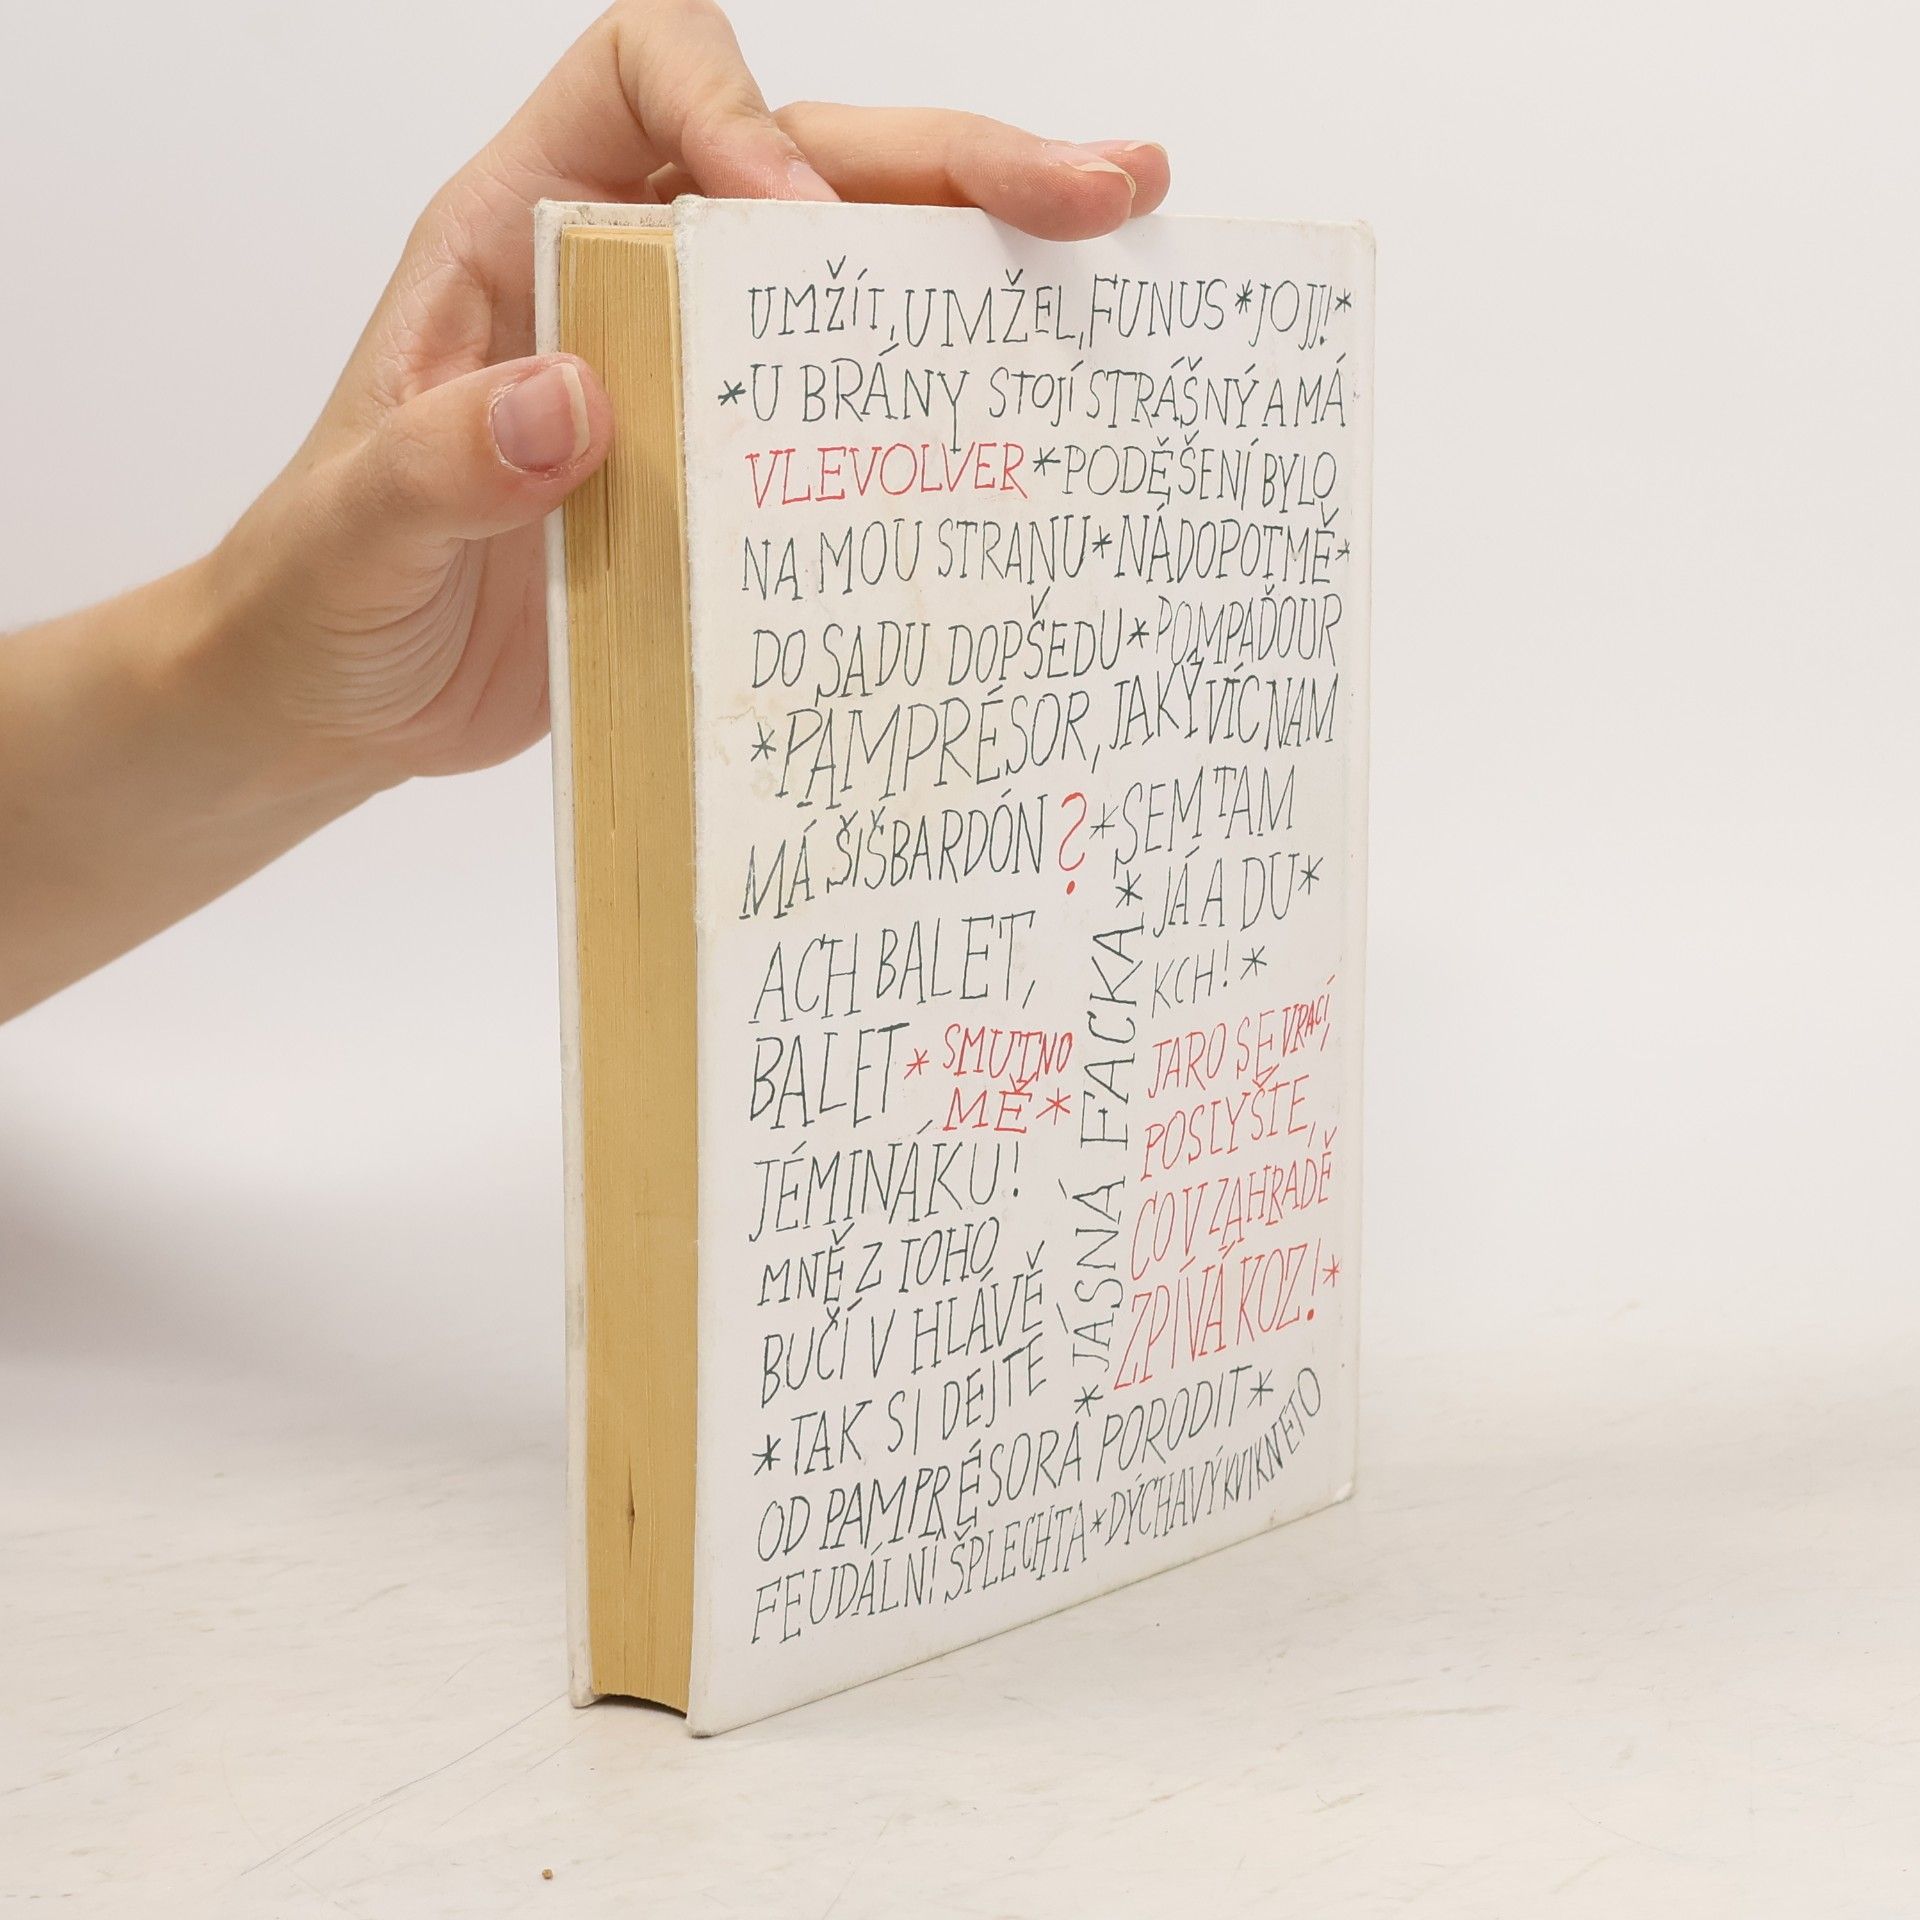 UMŽÍT, UMŽEL, FUNUS * JOJ! *
* U BRÁNY STOJÍ STRÁŠNÝ A MÁ
VLEVOLVER * PODĚŠENÍ BYLO
NA MOU STRANU * NÁDOPOTMĚ *
DO SADU DOPŠEDU * POMPAĎOUR
* PAMPRÉSOR, JAKÝ VÍC NAM
MÁ ŠIŠBARDÓN ? * SEM TAM
JÁ A DU *
KCH! *
ACH BALET,
BALET * SMUTNO
MĚ *
JÉMINÁKU!
MNĚ Z TOHO
BUČÍ V HLÁVĚ
* JÁSNÁ FACKA *
JARO SE VRACÍ,
POSLYŠTE,
CO V ZAHRADĚ
ZPÍVÁ KOZ! *
* TAK SI DEJTE
OD PAMPRÉSORA PORODIT *
FEUDÁLNÍ ŠPLECHTA * DÝCHAVÝ KVIKNETO